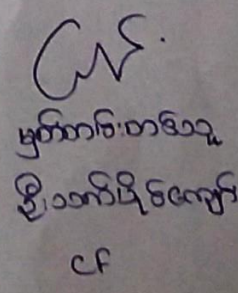 မှတ်တမ်းတင်သူ
ဦးသက်နိုင်ကျော်
CF